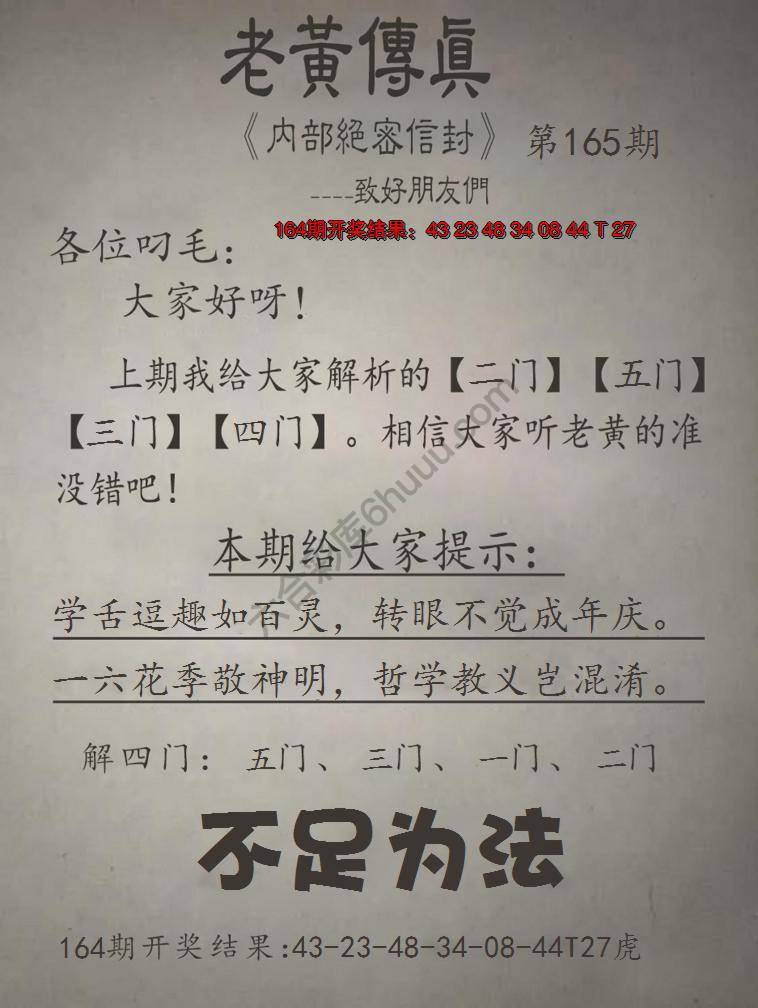 老黃傳眞
《内部絕密信封》 第165期
----致好朋友們
164期开奖结果：43 23 48 34 08 44 T 27
各位叼毛：
大家好呀！
上期我给大家解析的【二门】【五门】
【三门】【四门】。相信大家听老黄的准
没错吧！
本期给大家提示：
学舌逗趣如百灵，转眼不觉成年庆。
一六花季敬神明，哲学教义岂混淆。
解四门： 五门、 三门、 一门、 二门
不足为法
164期开奖结果:43-23-48-34-08-44T27虎
六合彩库6huuu.com